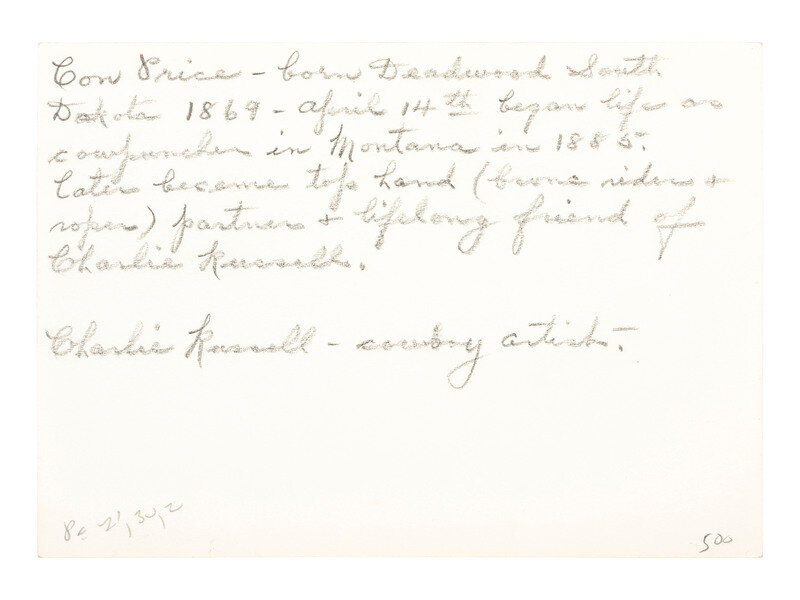 Con Price - born Deadwood South
Dakota 1869 - April 14th began life as
cowpuncher in Montana in 1885.
Later became top hand (bronc rider +
roper) partner + lifelong friend of
Charlie Russell.
Charlie Russell - cowboy artist.
500